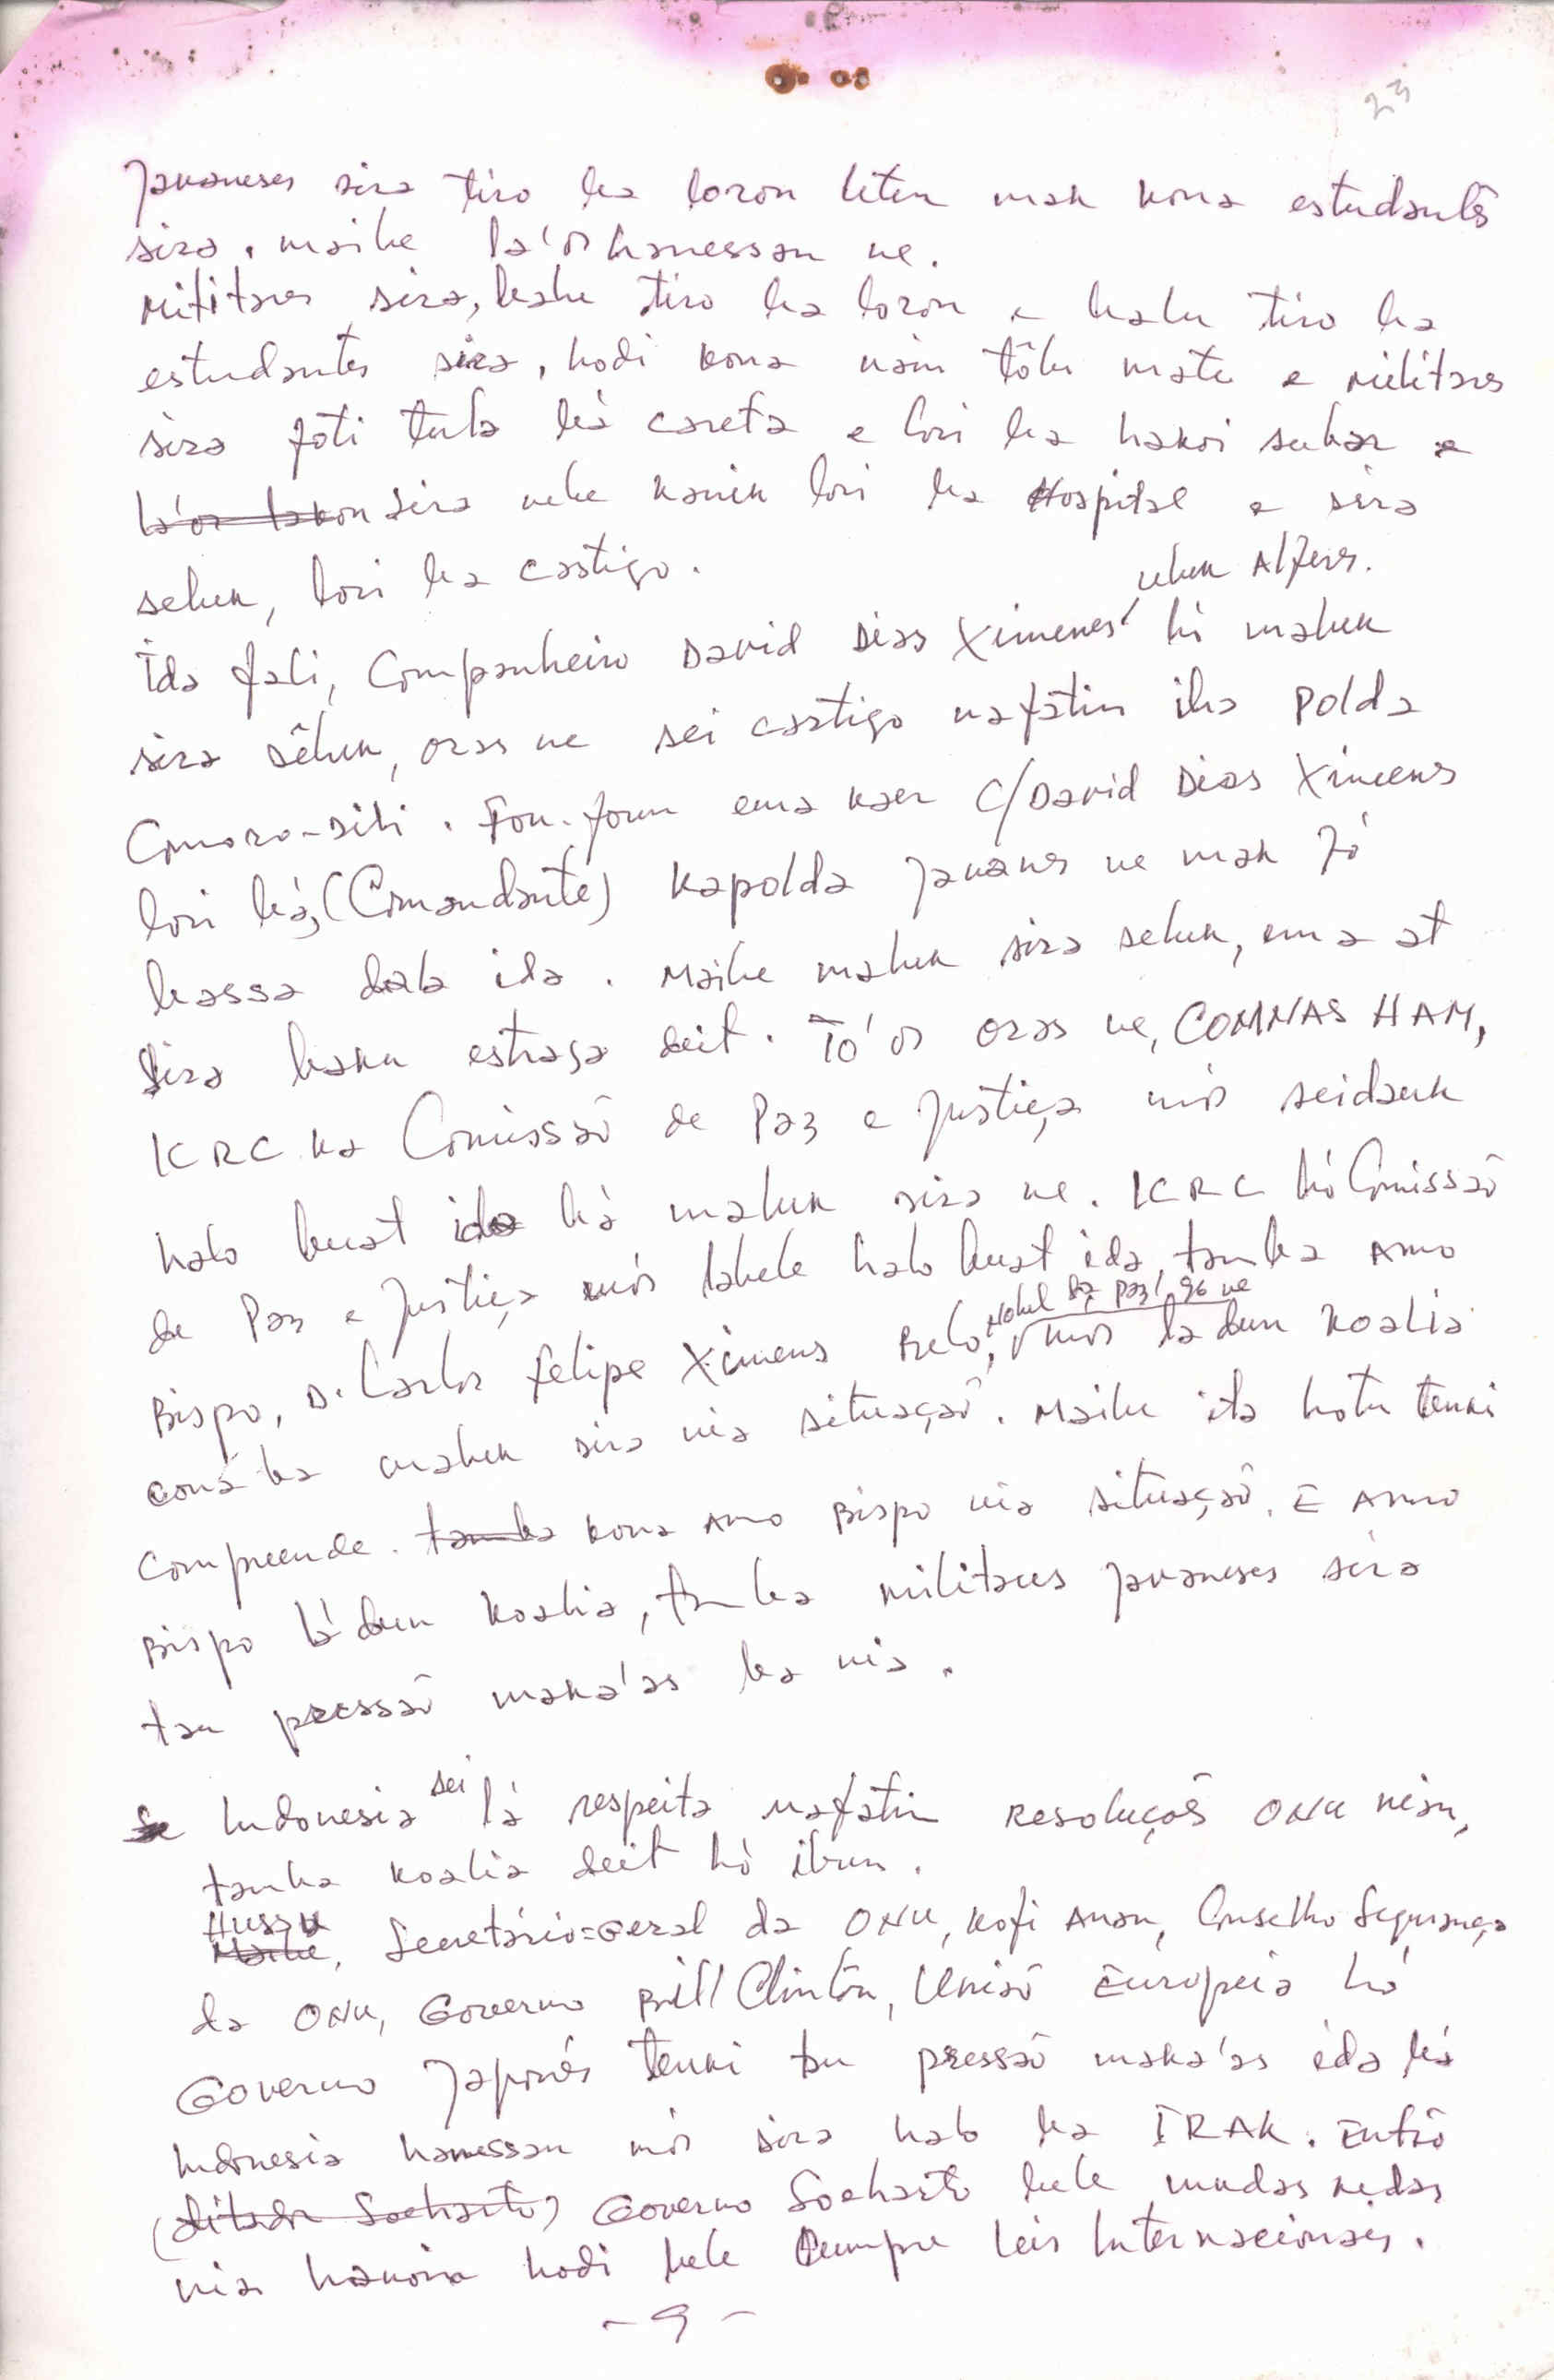 23
Javaneses sira tiro ba loron leten mak kona estudantes
sira, maibe la'ós hanessan ne.
Militares sira, balu tiro ba loron e balu tiro ba
estudantes sira, hodi kona nain tôlu mate e militares
sira foti tula bá careta e lori ba hakoi subar e
sira nebe kanek lori ba Hospital e sira
seluk, lori ba castigo.
uluk Alferes.
Ida fali, Companheiro David Dias Ximenes hó maluk
sira sêluk, oras ne sei castigo nafatin iha Polda
Comoro-Dili. Fou-foun ema kaer C/David Dias Ximenes
lori bá, (Comandante) Kapolda Javanes ne mak fó
bassa dala ida. Maibe maluk sira seluk, ema at
sira baku estraga deit. Tó'os oras ne, COMNAS HAM,
ICRC ka Comissaõ de Paz e Justiça mós seidauk
halo buat ida bá maluk sira ne. ICRC hó Comissaõ
de Paz e Justiça mós labele halo buat ida, tamba Amo
Nobel da Paz/96 ne
Bispo, D. Carlos Felipe Ximenes Belo, mós la dun koalia
coná ba maluk sira nia situaçaõ. Maibe ita hotu tenki
compreende. tamba kona Amo Bispo nia situaçaõ. E Amo
Bispo lá dun koalia, tamba militares javaneses sira
tau pressaõ maka'as ba nia.
sei
Indonesia lá respeita nafatin Resoluçoẽs ONU nian,
tamba koalia deit hó ibun.
Hussu
Maibe, Secretário=Geral da ONU, Kofi Anan, Conselho Segurança
da ONU, Governo Bill Clintôn, Uniaõ Europeia hó
Governo Japonés tenki tau pressaõ maka'as ida bá
Indonesia hanessan mós sira halo ba IRAK. Entaõ
(ditador Soeharto) Governo Soeharto bele mudas nedas
nia hanoin hodi bele cumpre leis Internacionaes.
- 9 -